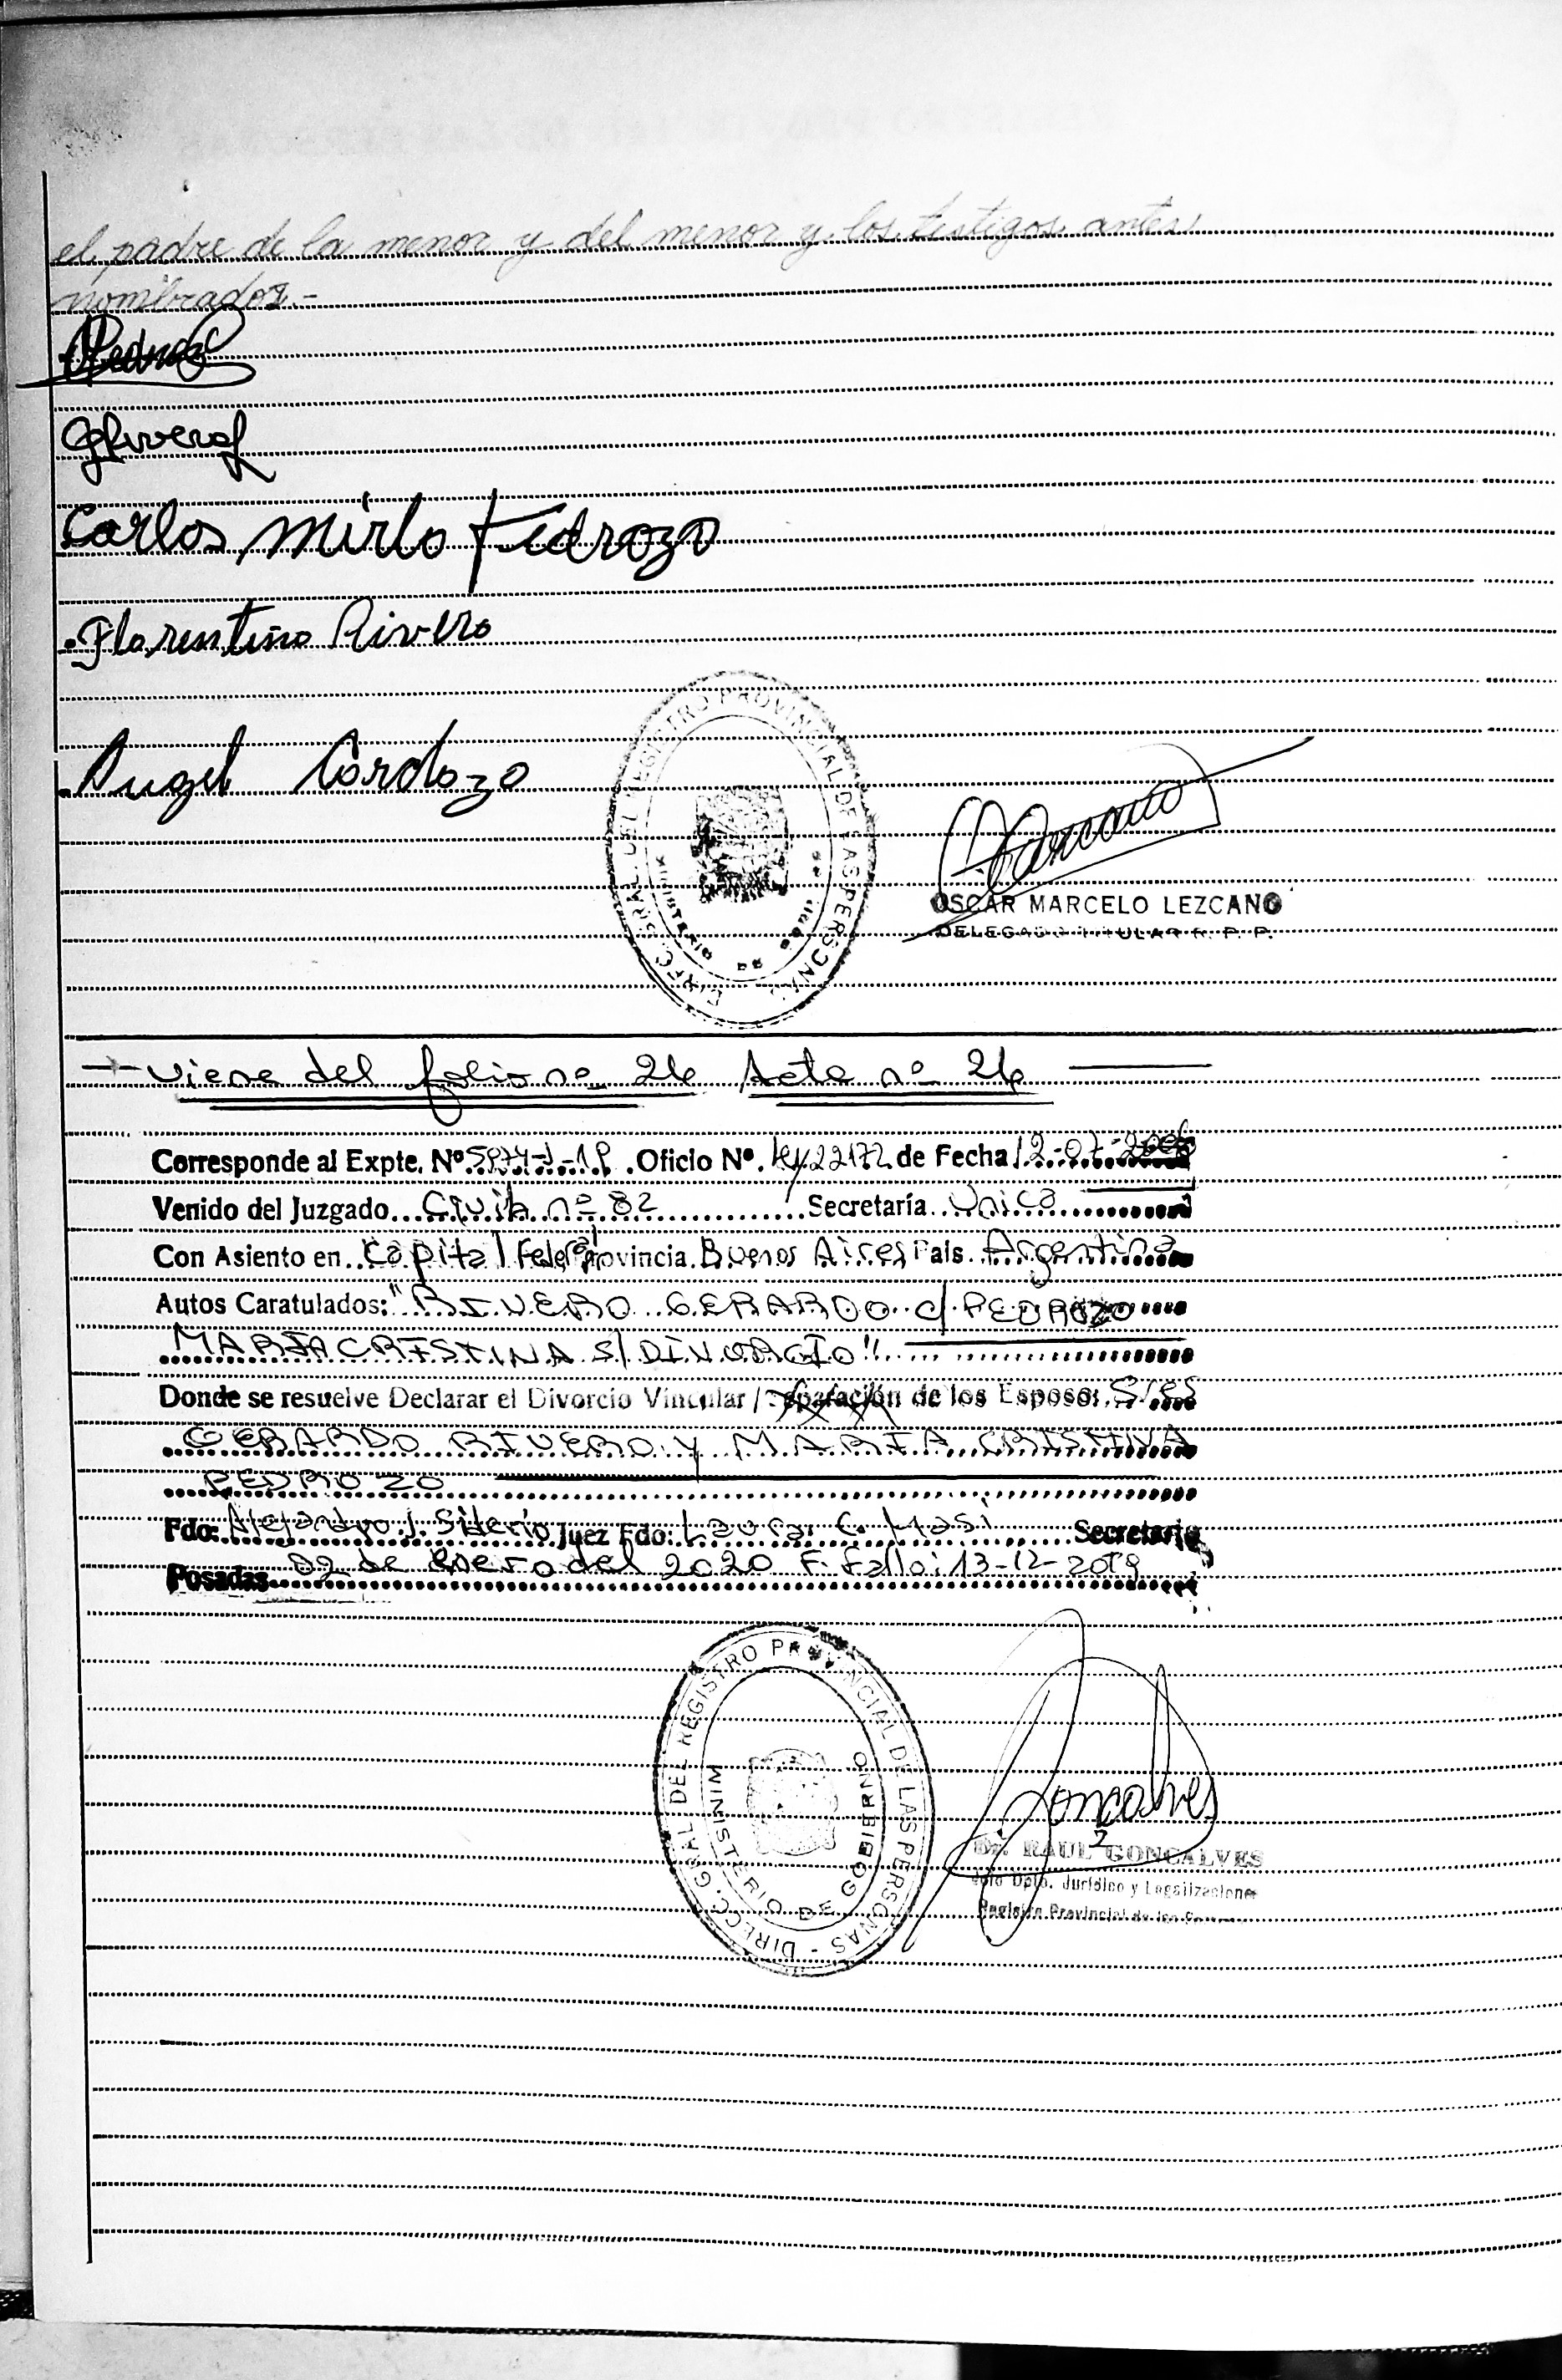 el padre de la menor y del menor y los testigos antes
nombrados.-
Carlos Mirto Pedrozo
Florentino Rivero
Angel Cardozo
DIREC. GRAL. DEL REGISTRO PROVINCIAL DE LAS PERSONAS
MINISTERIO DE
OSCAR MARCELO LEZCANO
DELEGADO TITULAR R. P. P.
Viene del folio nº 26 Acta nº 26
Corresponde al Expte. Nº Oficio Nº. de Fecha 12-07-
Venido del Juzgado Civil nº 82 Secretaría Unica
Con Asiento en Capital Federal Provincia Buenos Aires País Argentina
Autos Caratulados: "RIVERO GERARDO c/ PEDROZO
MARIA CRISTINA S/ DIVORCIO"
Donde se resuelve Declarar el Divorcio Vincular / Separación de los Esposos Sres
GERARDO RIVERO Y MARIA CRISTINA
PEDROZO
Fdo: Alejandro J. Siderio Juez Fdo: Laura C. Masi Secretaria
Posadas 02 de Enero del 2020 F. fallo: 13-12-2019
DIRECC. GRAL DEL REGISTRO PROVINCIAL DE LAS PERSONAS
MINISTERIO DE GOBIERNO
Goncalves
Dr. RAUL GONCALVES
Jefe Dpto. Jurídico y Legalizaciones
Registro Provincial de las